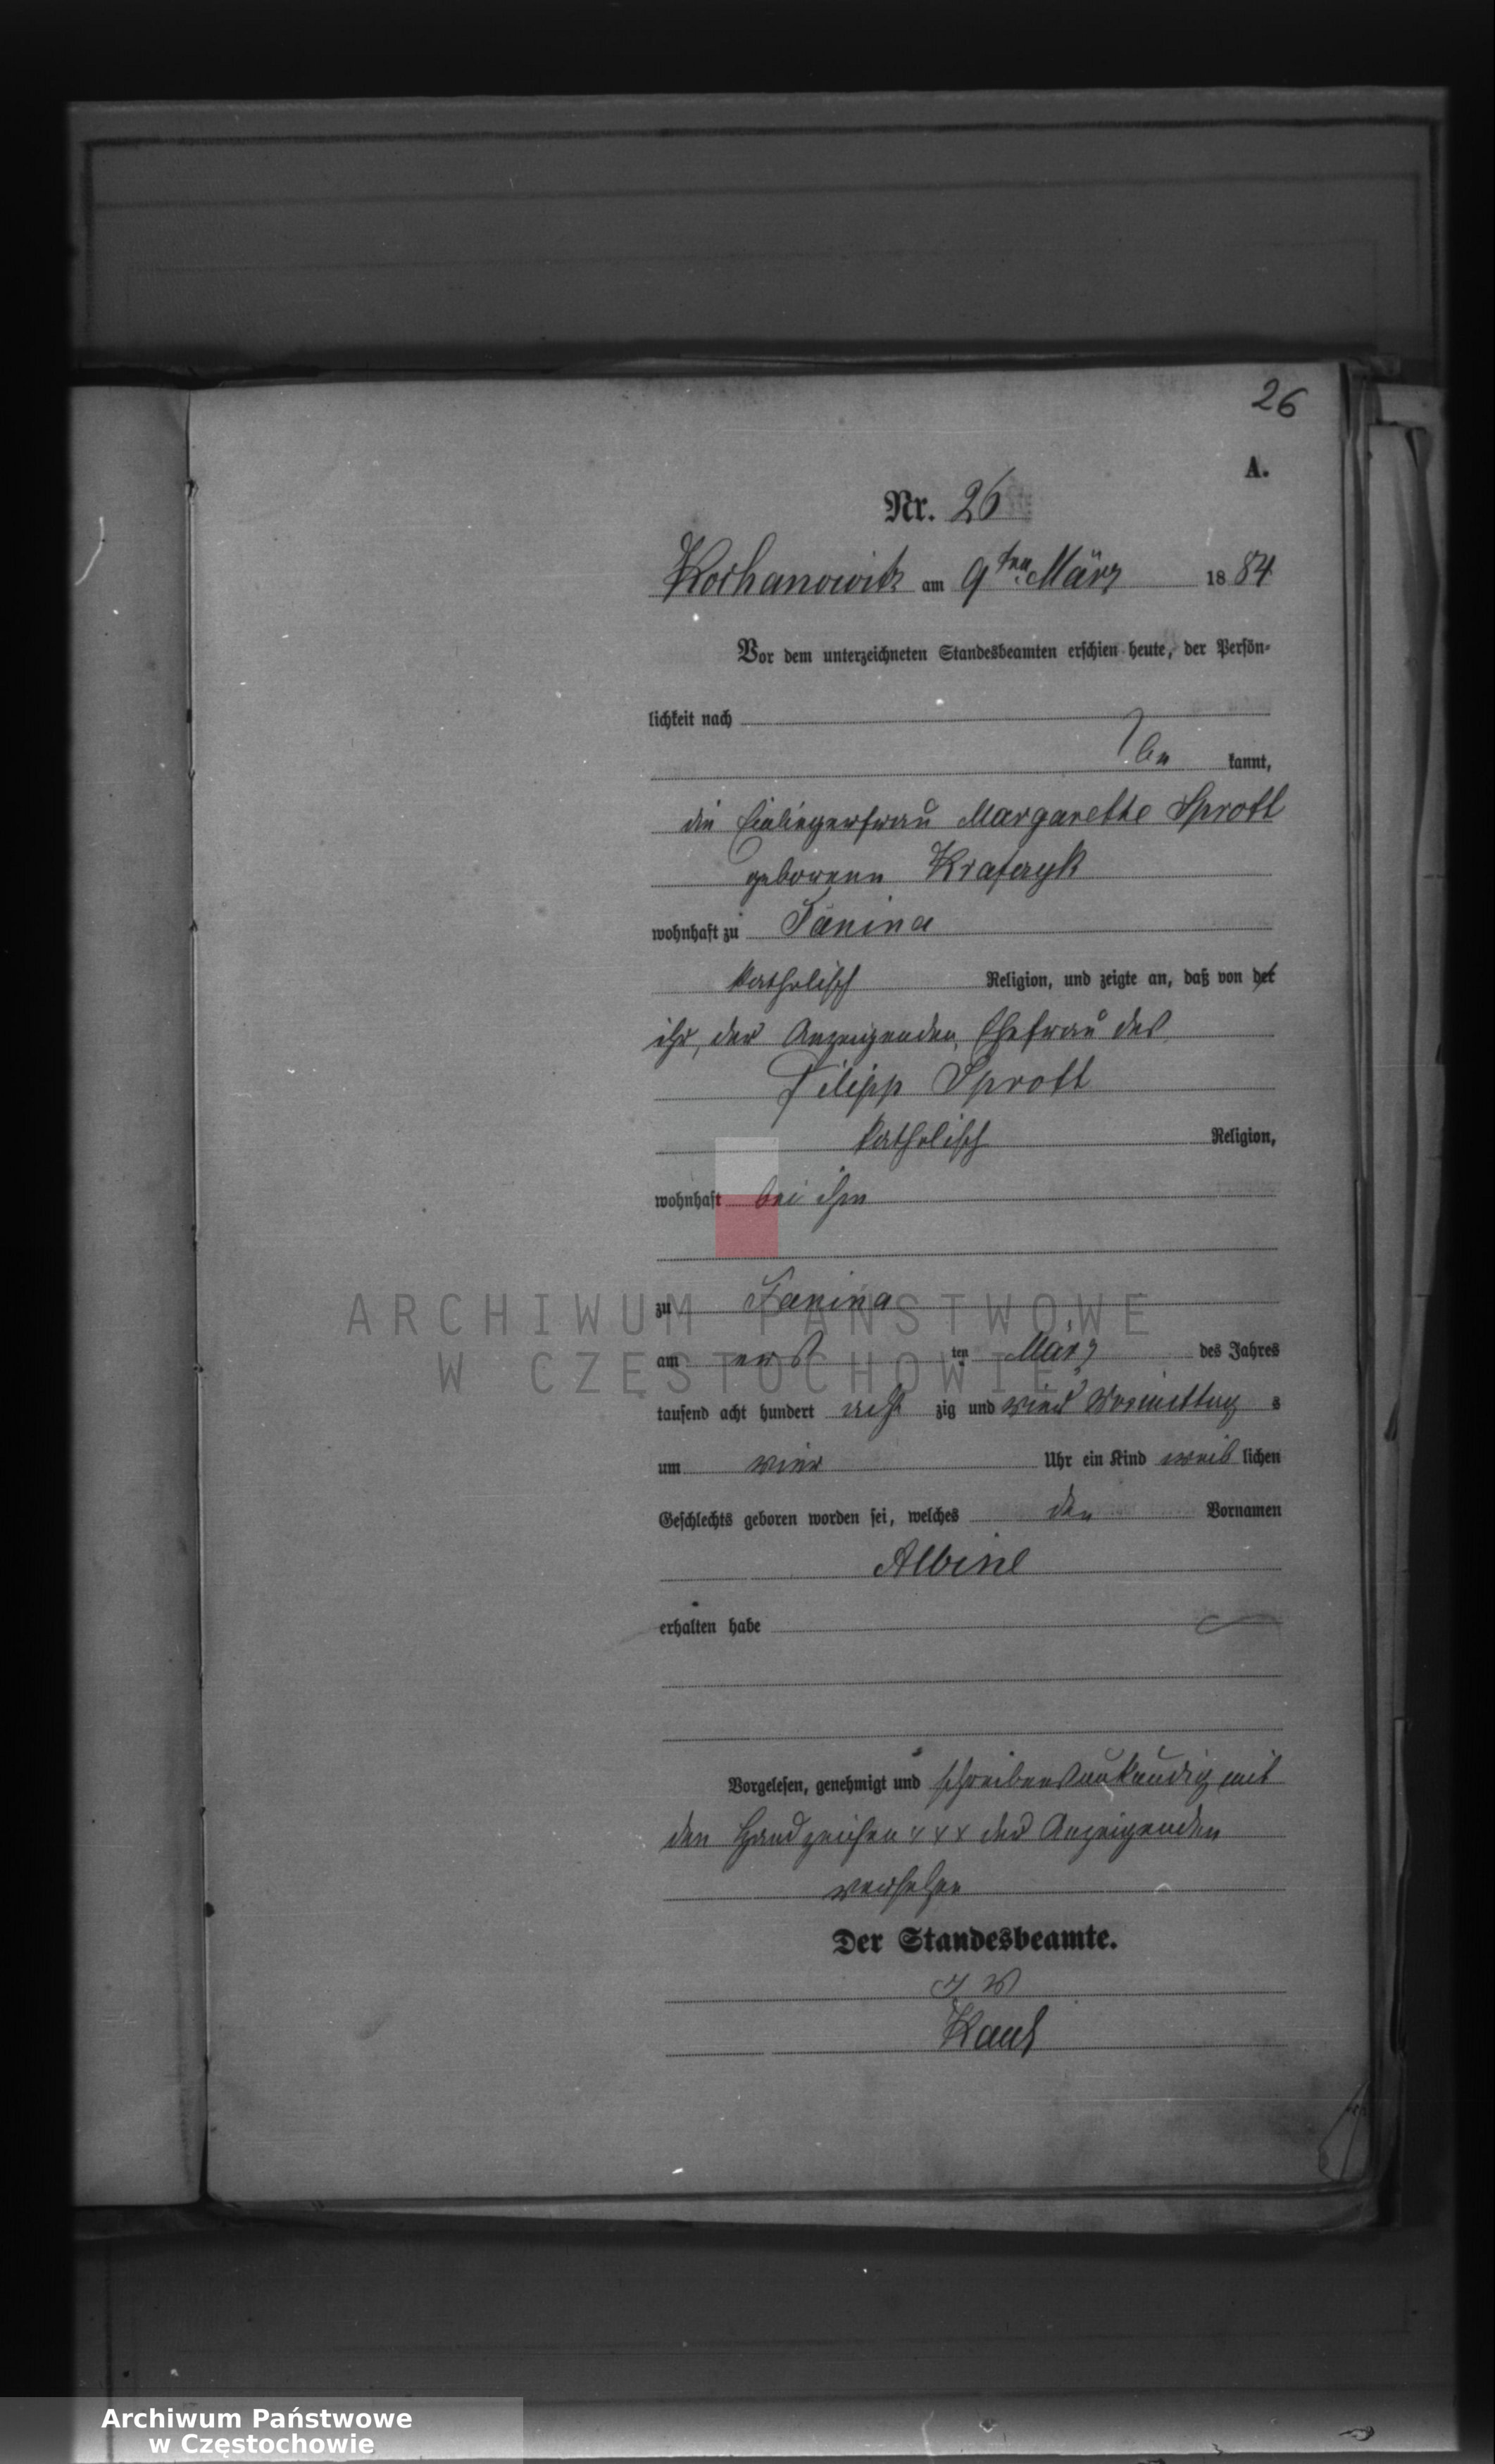 26
A.
Nr. 26
Kochanowitz am 9ten März 1884
Vor dem unterzeichneten Standesbeamten erschien heute, der Persön-
lichkeit nach
be kannt,
die Einliegerfrau Margarethe Sprott
geborene Krafczyk
wohnhaft zu Panina
katholisch Religion, und zeigte an, daß von der
ihr, der Anzeigenden, Ehefrau des
Filipp Sprott
katholisch Religion,
wohnhaft bei ihm
zu Panina
am erst ten März des Jahres
tausend acht hundert acht zig und vier Vormittag s
um vier Uhr ein Kind weib lichen
Geschlechts geboren worden sei, welches den Vornamen
Albine
erhalten habe
Vorgelesen, genehmigt und schreibensunkundig mit
den Handzeichen x x x der Anzeigenden
versehen
Der Standesbeamte.
ARCHIWUM PAŃSTWOWE
W CZĘSTOCHOWIE
Archiwum Państwowe
w Częstochowie